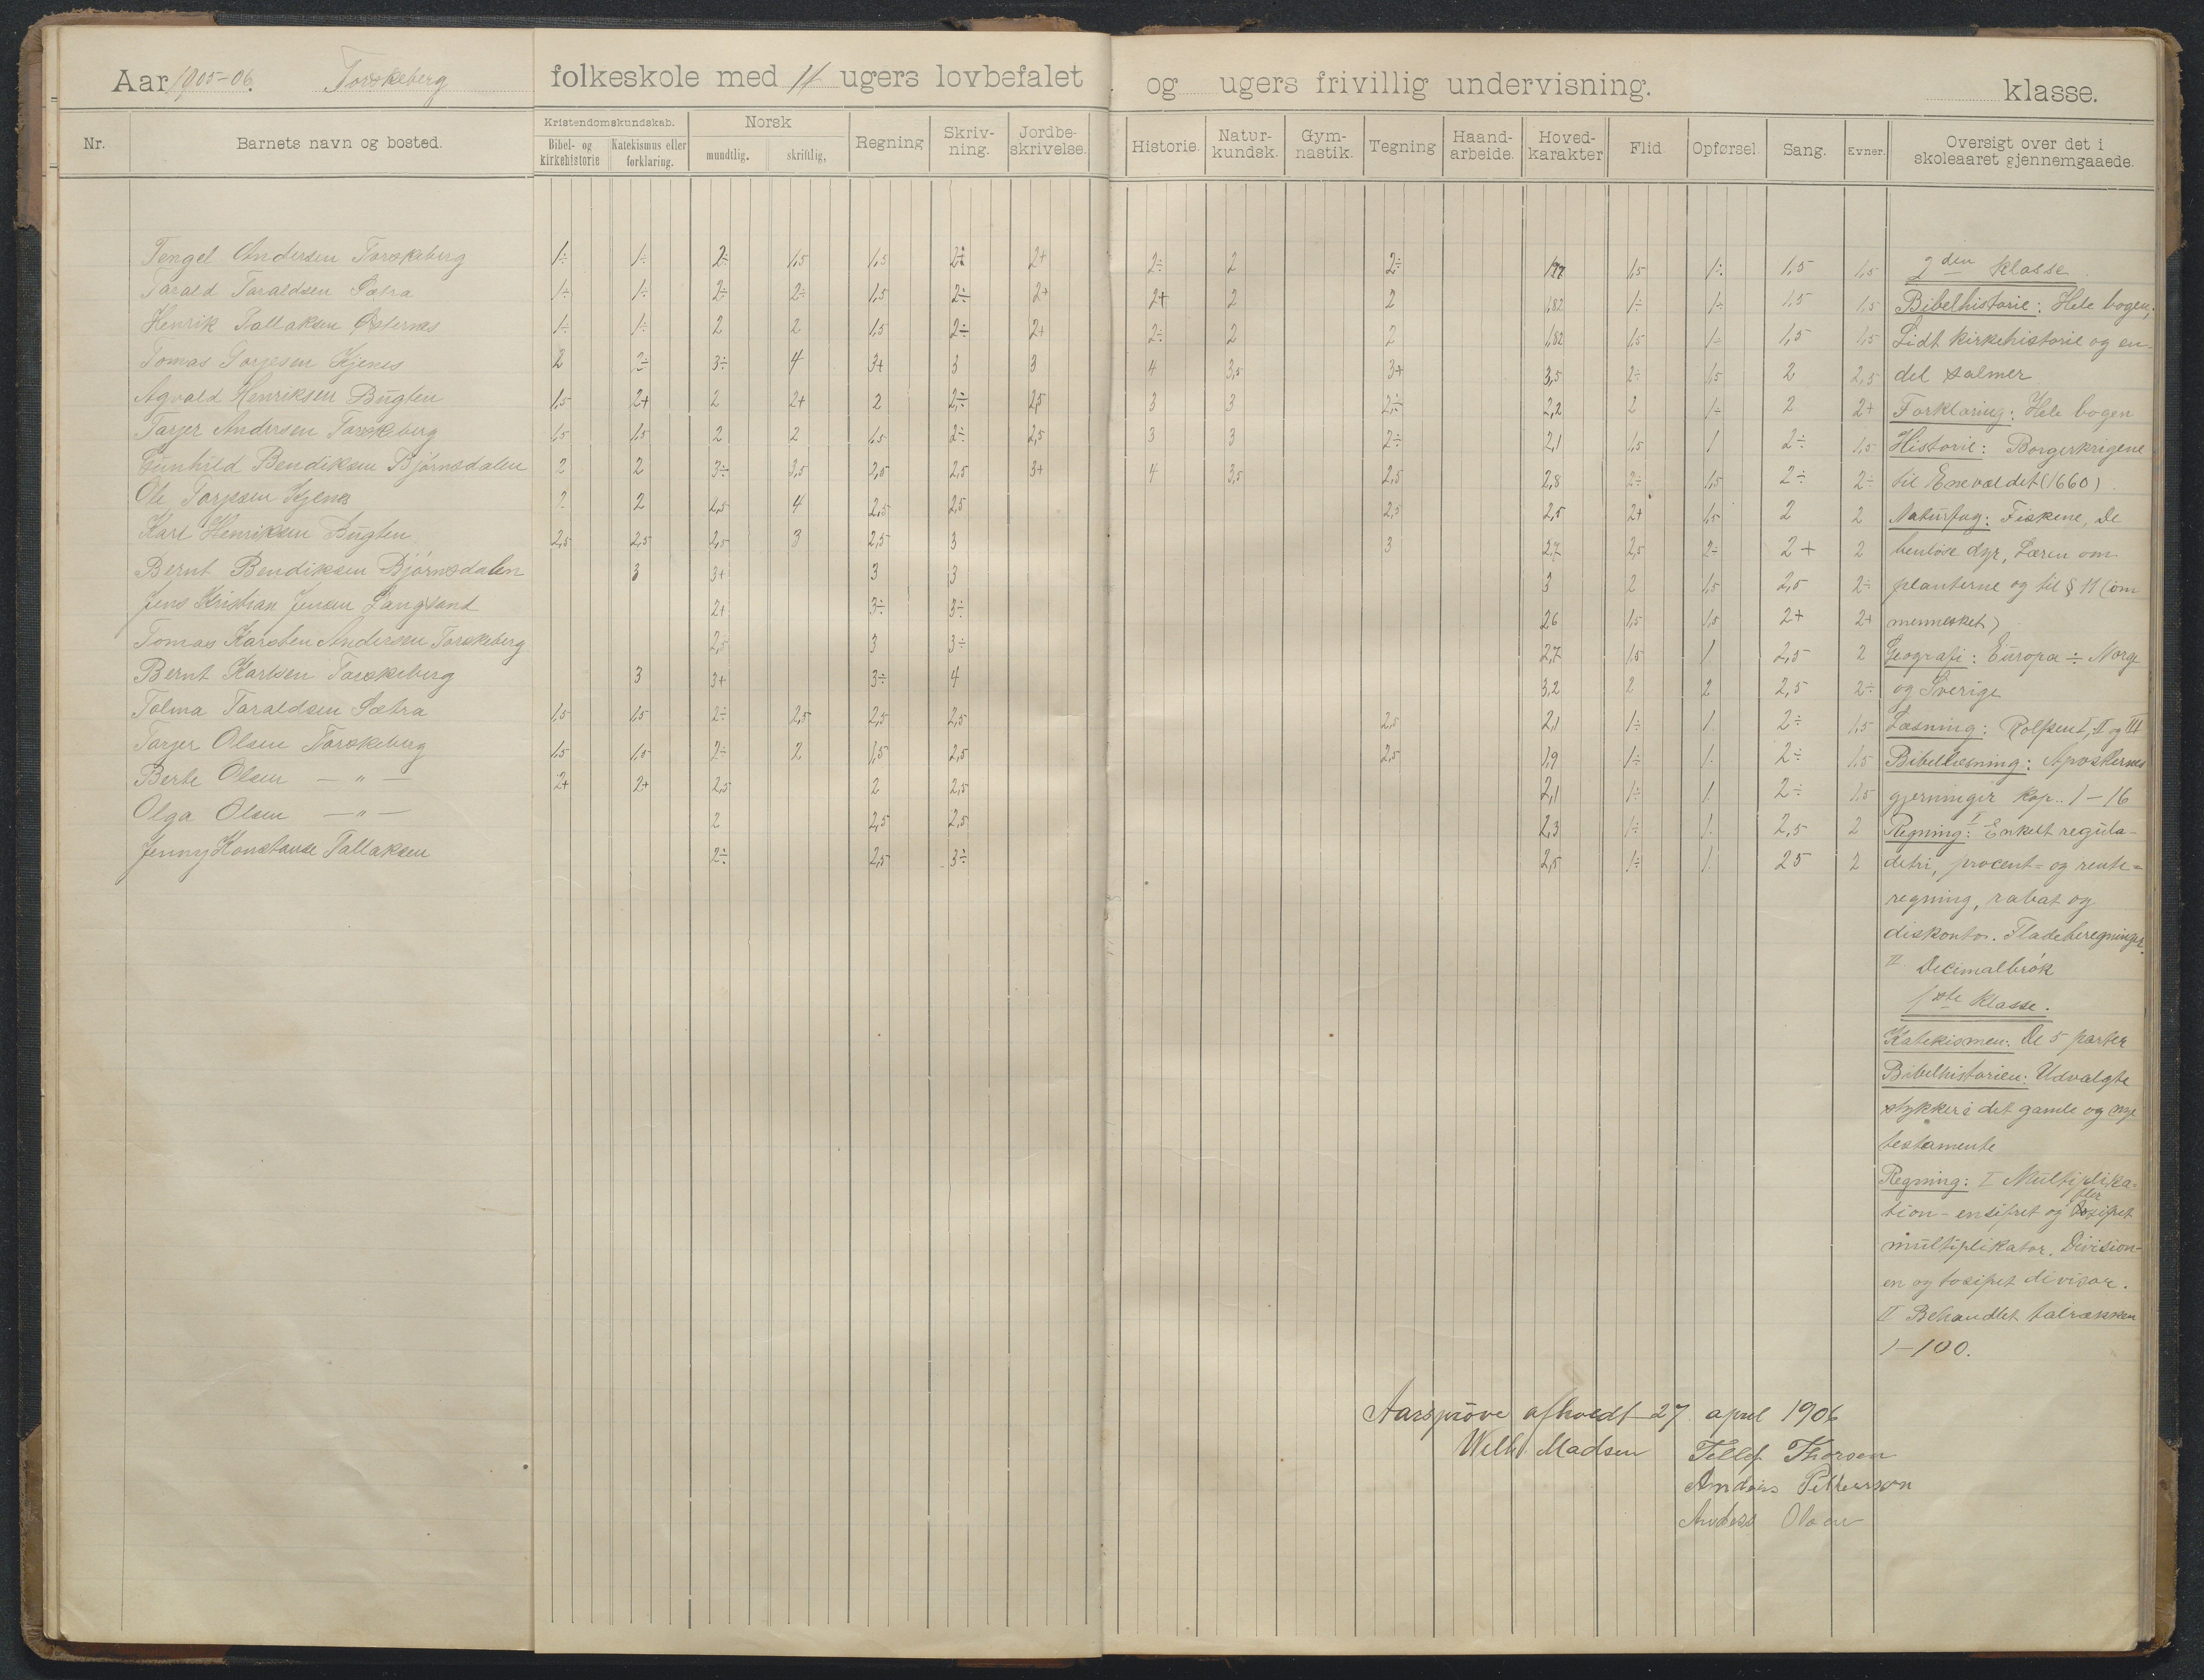 Aar 1905-06. Torskeberg folkeskole med 14 ugers lovbefalet og ugers frivillig undervisning. klasse.
Nr. Barnets navn og bosted. Kristendomskundskab. Bibel- og kirkehistorie Katekismus eller forklaring. Norsk mundtlig. skriftlig, Regning Skriv-ning. Jordbe-skrivelse. Historie. Natur-kundsk. Gym-nastik. Tegning Haand-arbeide. Hoved-karakter Flid Opførsel Sang. Evner. Oversigt over det i skoleaaret gjennemgaaede.
Tengel Andersen Torskeberg 1÷ 1÷ 2÷ 1,5 1,5 2÷ 2+ 2÷ 2 2÷ 1,77 1,5 1÷ 1,5 1,5
Tarald Taraldsen Sætra 1÷ 1÷ 2÷ 2÷ 1,5 2÷ 2+ 2+ 2 2 1,82 1÷ 1÷ 1,5 1,5
Henrik Tallaksen Østernes 1÷ 1÷ 2 2 1,5 2÷ 2+ 2÷ 2 2 1,82 1,5 1÷ 1,5 1,5
Tomas Torjesen Kjenes 2 2÷ 3÷ 4 3+ 3 3 4 3,5 3+ 3,5 2÷ 1,5 2 2,5
Agvald Henriksen Bugten 1,5 2+ 2 2+ 2 2÷ 2,5 3 3 2÷ 2,2 2 1÷ 2 2+
Tarjer Andersen Torskeberg 1,5 1,5 2 2 1,5 2÷ 2,5 3 3 2÷ 2,1 1,5 1 2÷ 1,5
Gunhild Bendiksen Bjørnsdalen 2 2 3÷ 3,5 2,5 2,5 3+ 4 3,5 2,5 2,8 2÷ 1,5 2÷ 2÷
Ole Torjesen Kjenes 2 2 2,5 4 2,5 2,5 2,5 2,5 2+ 1,5 2 2
Karl Henriksen Bugten 2,5 2,5 2,5 3 2,5 3 3 2,7 2,5 2÷ 2+ 2
Bernt Bendiksen Bjørnsdalen 3 3+ 3 3 3 2 1,5 2,5 2÷
Jens Kristian Jensen Langsand 2+ 3÷ 3÷ 26 1,5 1,5 2+ 2+
Tomas Karsten Andersen Torskeberg 2,5 3 3÷ 2,7 1,5 1 2,5 2
Bernt Karlsen Torskeberg 3 3+ 3÷ 4 3,2 2 2 2,5 2÷
Tolma Taraldsen Sætra 1,5 1,5 2÷ 2,5 2,5 2,5 2,5 2,1 1÷ 1 2÷ 1,5
Tarjer Olsen Torskeberg 1,5 1,5 2÷ 2 1,5 2,5 2,5 1,9 1÷ 1 2÷ 1,5
Berte Olsen — " — 2+ 2+ 2,5 2 2,5 2,1 1÷ 1 2÷ 1,5
Olga Olsen — " — 2 2,5 2,5 2,3 1÷ 1 2,5 2
Jenny Konstanse Tallaksen 2÷ 2,5 3÷ 2,5 1÷ 1 25 2
2den klasse.
Bibelhistorie: Hele bogen;
Lidt kirkehistorie og en-
del salmer
Forklaring: Hele bogen
Historie: Borgerkrigene
til Enevældet (1660)
Naturfag: Fiskene, de
benløse dyr, Læren om
planterne og til § 11 (om
mennesket)
Geografi: Europa ÷ Norge
og Sverige
Læsning: Rolfsen I, II og III
Bibellæsning: Apostlernes
gjerninger kap. 1-16
Regning: I Enkelt regula-
detri, procent- og rente-
regning, rabat og
diskonto. Fladeberegninger.
II Decimalbrøk
1ste klasse.
Katekismen: De 5 parter
Bibelhistorien: Udvalgte
stykker i det gamle og nye
testamente
Regning: I Multiplika-
tion - ensifret og fler sifret
multiplikator. Division-
en og tosifret divisor.
II Behandlet talrækken
1-100.
Aarsprøve afholdt 27 april 1906
Wilh. Madsen Tellef Thorsen
Andreas Pettersson
Anders Olsen